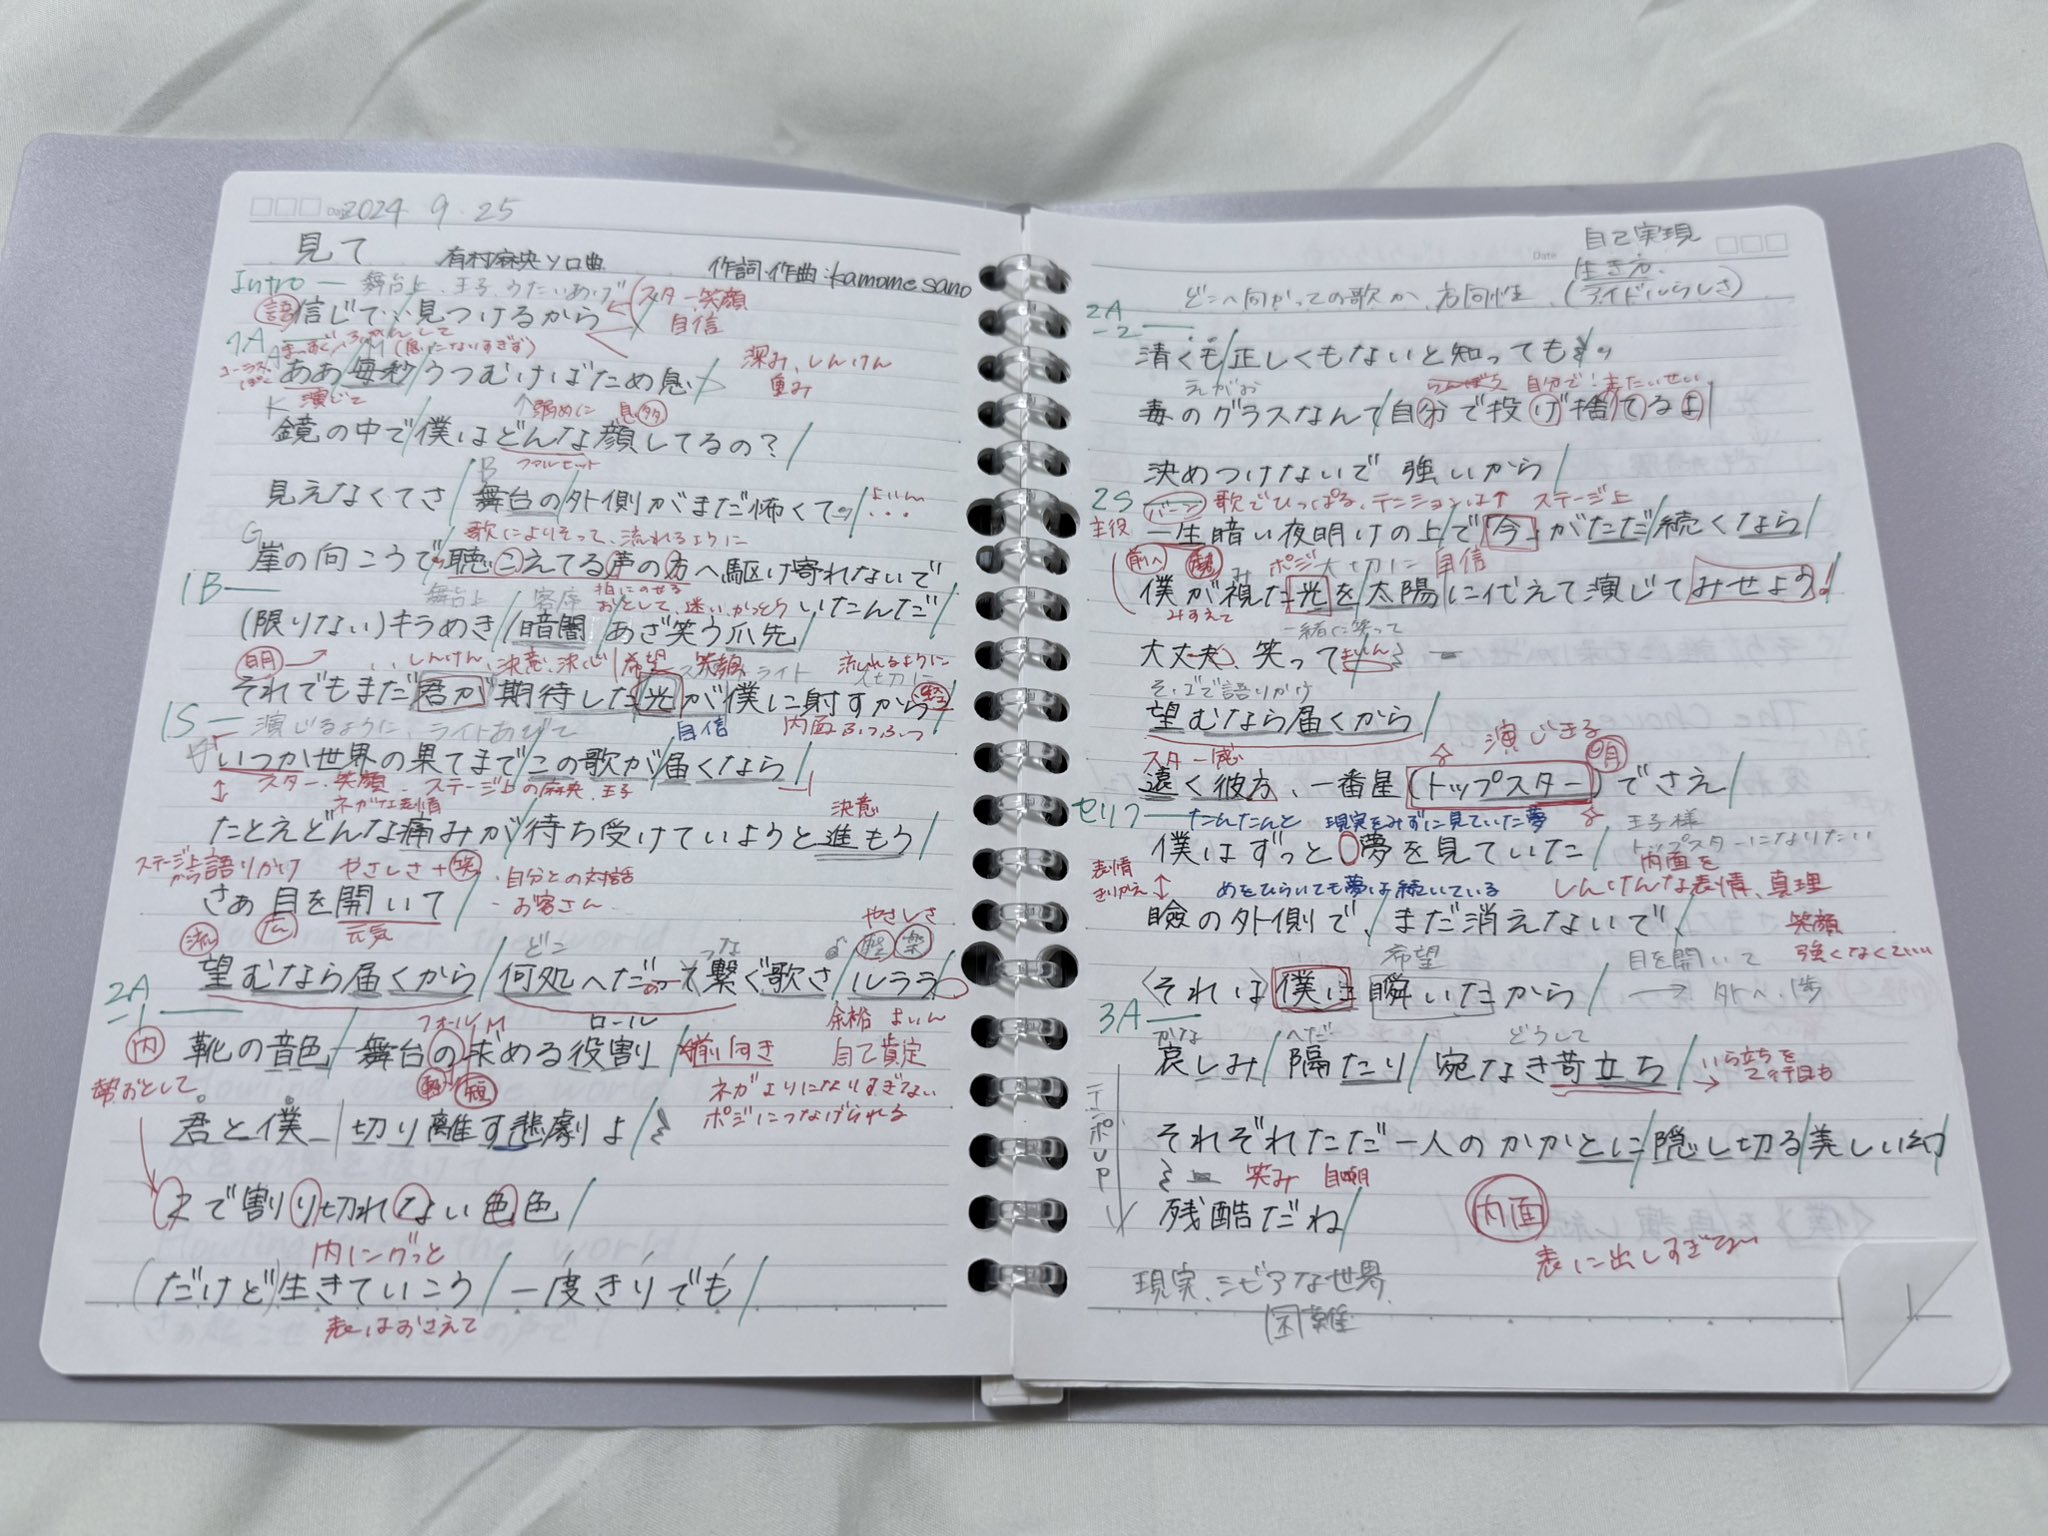 2024 9.25
見て 有村麻央ソロ曲 作詞・作曲:kamome sano
Intro 舞台上、王子、うたいあげ スター笑顔
語 信じて、見つけるから 自信
1A まっすぐ
ああ/毎秒/うつむけばため息 深み、しんけん
演じて 弱めに 息 重み
鏡の中で/僕はどんな顔してるの?/
ファルセット
見えなくてさ/舞台の/外側がまだ怖くて/よいん…
歌によりそって、流れるように
崖の向こうで聴こえてる声の方へ駆け寄れないで
1B 舞台上 客席 いたんだ
(限りない)キラめき/暗闇/あざ笑う爪先/
明 しんけん、決意、決心 希望 笑顔 ライト 流れるように 大切に
それでもまだ君が/期待した光が/僕に射すから
1S 演じるように、ライトあびて 自信 内面ふつふつ
いつか世界の果てまで/この歌が/届くなら/
スター、笑顔 ステージ上の麻央、王子
ネガな表情 決意
たとえどんな痛みが/待ち受けていようと進もう/
ステージ上から語りかけ やさしさ+ ・自分との対話
さぁ 目を開いて/ - お客さん
元気 やさしさ
どこ つな
望むなら届くから/何処へだって繋ぐ歌さ/ルララ
2A
-1 フォール M ロール 余裕 よいん
内 靴の音色/舞台の求める役割/前向き 自己肯定
幕おとして ネガよりになりすぎない
君と僕/切り離す悲劇よ/ ポジにつなげられる
2で割り切れない色色/
内にグっと
(だけど)生きていこう/一度きりでも/
表はおさえて
自己実現
生き方
どこへ向かっての歌か、方向性 (アイドルらしさ)
2A
-2
清くも/正しくもないと知っても
えがお らんぼう 自分で!
毒のグラスなんて/自分で投げ捨てるよ/
決めつけないで 強いから/
2S 歌でひっぱる、テンションは↑ ステージ上
主役 一生暗い夜明けの上/で「今」がただ/続くなら/
前へ ポジ 大切に 自信
僕が視た光を/太陽/に代えて演じてみせよう!
みすえて 一緒に笑って
大丈夫、笑って
そこで語りかけ
望むなら届くから/
スター感 演じきる 明
遠く彼方、一番星(トップスター)でさえ/
セリフ たんたんと 現実をみずに見ていた夢 王子様
僕はずっと夢を見ていた/ トップスターになりたい
表情きりかえ 内面を
めをひらいても夢は続いている しんけんな表情、真理
瞼の外側で、まだ消えないで、 笑顔
希望 目を開いて 強くなくていい
それは僕は瞬いたから/ → 外へ、1歩
3A
かな へだ どうして
哀しみ/隔たり/宛なき苛立ち/ いら立ちを2行目も
テンポUP それぞれただ一人のかかとに/隠し切る/美しい幻
笑み 自嘲
残酷だね/ 内面
表に出しすぎない
現実、シビアな世界、
困難
1